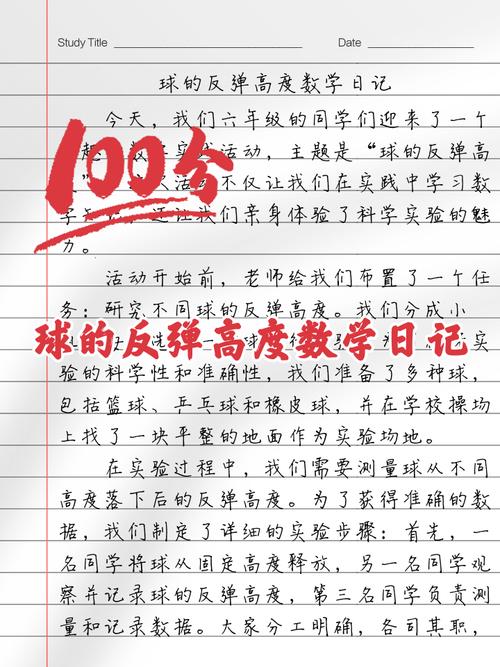 Study Title
Date
球的反弹高度数学日记
今天，我们六年级的同学们迎来了一个
100分
趣 数学实 活动，主题是“球的反弹高
” 次活 不仅让我们在实践中学习数
学 还让我们亲身体验了科学实验的魅
力。
活动开始前，老师给我们布置了一个任
务：研究不同球的反弹高度。我们分成小
球的反弹高度数学日记
验的科学性和准确性，我们准备了多种球，
包括篮球、乒乓球和橡皮球，并在学校操场
上找了一块平整的地面作为实验场地。
在实验过程中，我们需要测量球从不同
高度落下后的反弹高度。为了获得准确的数
据，我们制定了详细的实验步骤：首先，一
名同学将球从固定高度释放，另一名同学观
察并记录球的反弹高度，第三名同学负责测
量和记录数据。大家分工明确，各司其职，